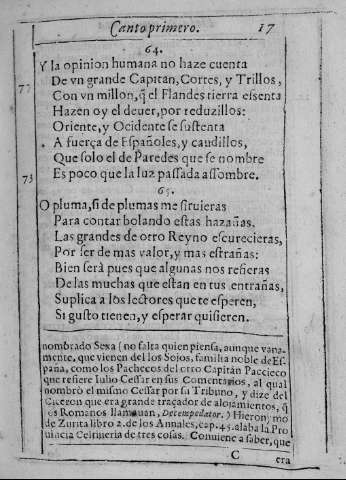 Canto primero. 17
64.
Y la opinion humana no haze cuenta
De vn grande Capitan, Cortes, y Trillos,
77
Con vn millon, q̃ el Flandes tierra essenta
Hazen oy el deuer, por reduzillos:
Oriente, y Ocidente se sustenta
A fuerça de Españoles, y caudillos,
Que solo el de Paredes que se nombre
73
Es poco que la luz passada assombre.
65.
O pluma, si de plumas me siruieras
Para contar bolando estas hazañas,
Las grandes de otro Reyno escurecieras,
Por ser de mas valor, y mas estrañas:
Bien serà pues que algunas nos refieras
De las muchas que estan en tus entrañas,
Suplica a los lectores que te esperen,
Si gusto tienen, y esperar quisieren.
nombrado Sexa (no falta quien piensa, aunque vana-
mente, que vienen del los Sojos, familia noble de Es-
paña, como los Pachecos del otro Capitán Paccieco
que refiere Iulio Cessar en sus Comentarios, al qual
nombrò el mismo Cessar por su Tribuno, y dize del
Ciceron que era grande traçador de alojamientos, q̃
los Romanos llamauan, Decempedator.) Hieronymo
de Zurita libro 2. de los Annales, cap. 45. alaba la Pro
uincia Celtiueria de tres cosas. Conuiene a saber, que
C era